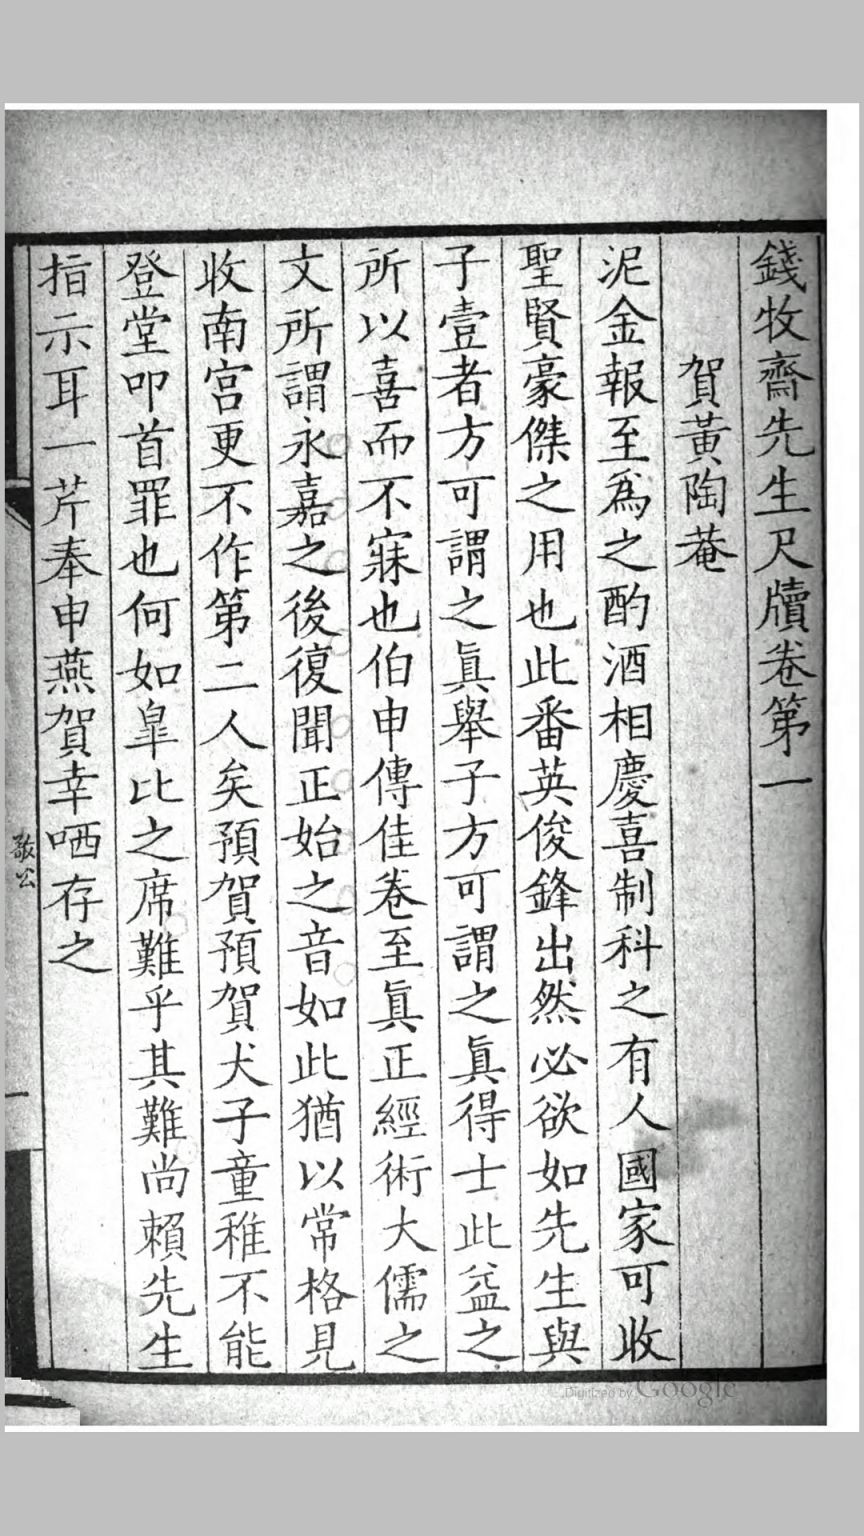 錢牧齋先生尺牘卷第一
賀黃陶菴
泥金報至為之酌酒相慶喜制科之有人國家可收
聖賢豪傑之用也此番英俊鋒出然必欲如先生與
子壹者方可謂之眞舉子方可謂之眞得士此益之
所以喜而不寐也伯申傳佳卷至眞正經術大儒之
文所謂永嘉之後復聞正始之音如此猶以常格見
收南宮更不作第二人矣預賀預賀犬子童稚不能
登堂叩首罪也何如臯比之席難乎其難尚賴先生
指示耳一芹奉申燕賀幸哂存之
敬公
Digitized by Google